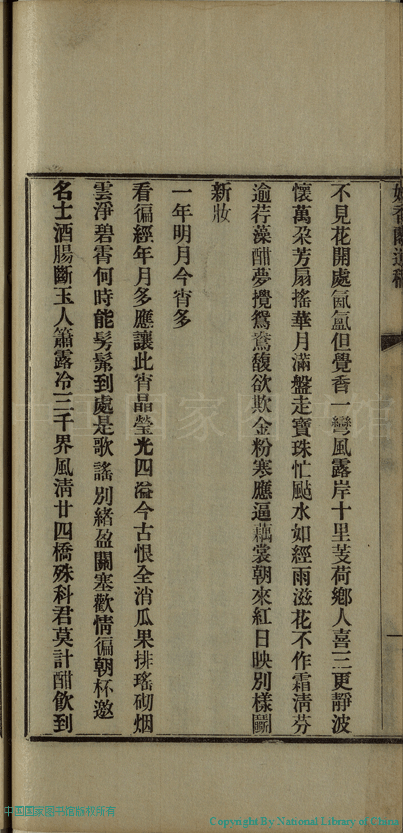 不見花開處氤氳但覺香一彎風露岸十里芰荷鄉人喜三更靜波
懷萬朶芳扇搖華月滿盤走寶珠忙颭水如經雨滋花不作霜淸芬
逾荇藻酣夢攪鴛鴦馥欲欺金粉寒應逼藕裳朝來紅日映別樣鬭
新妝
一年明月今宵多
看徧經年月多應讓此宵晶瑩光四溢今古恨全消瓜果排瑤砌烟
雲淨碧霄何時能髣髴到處是歌謠別緒盈關塞歡情徧朝杯邀
名士酒腸斷玉人簫露冷三千界風淸廿四橋殊科君莫計酣飮到
中国国家图书馆版权所有
Copyright By National Library of China